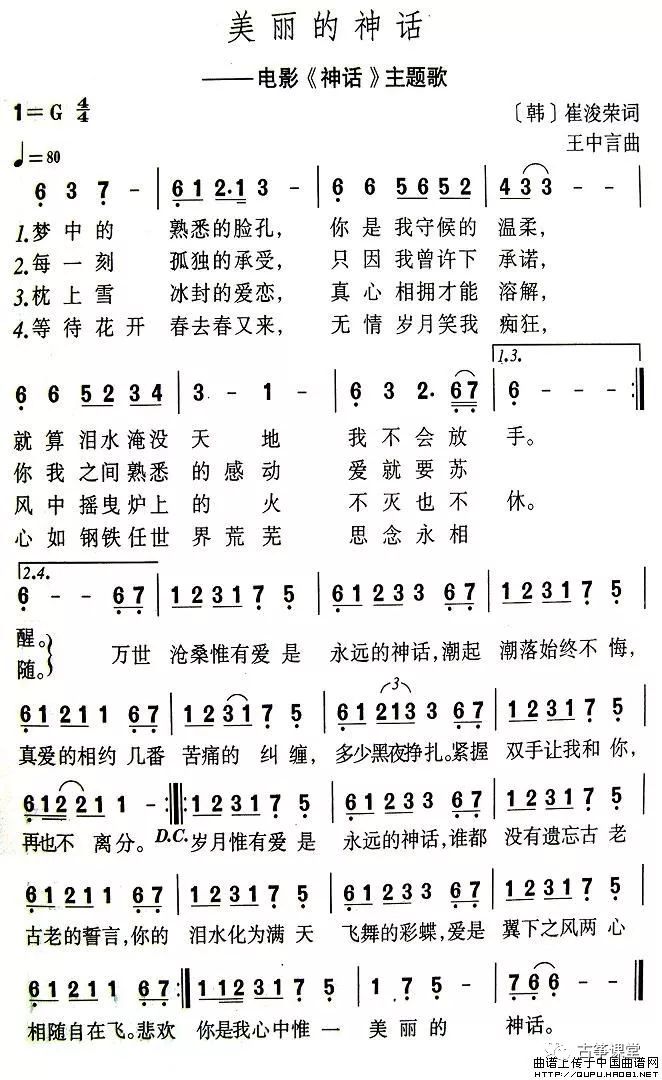 美丽的神话
——电影《神话》主题歌
1=G 4/4
〔韩〕崔浚荣词
♩=80
王中言曲
6 3 7 - | 6 1 2·1 3 - | 6 6 5 6 5 2 | 4 3 3 - - |
1.梦中的 熟悉的脸孔, 你是我守候的 温柔,
2.每一刻 孤独的承受, 只因我曾许下 承诺,
3.枕上雪 冰封的爱恋, 真心相拥才能 溶解,
4.等待花开 春去春又来, 无情岁月笑我 痴狂,
1.3.
6 6 5 2 3 4 | 3 - 1 - | 6 3 2· 6 7 | 6 - - :‖
就算泪水淹没 天地 我不会放 手。
你我之间熟悉 的感动 爱就要苏
风中摇曳炉上 的火 不灭也不 休。
心如钢铁任世 界荒芜 思念永相
2.4.
6 - - 6 7 | 1 2 3 1 7 5 | 6 1 2 3 3 6 7 | 1 2 3 1 7 5 |
醒。
万世 沧桑惟有爱是 永远的神话,潮起 潮落始终不悔,
随。
(3)
6 1 2 1 1 6 7 | 1 2 3 1 7 5 | 6 1 2 1 3 3 6 7 | 1 2 3 1 7 5 |
真爱的相约几番 苦痛的纠缠, 多少黑夜挣扎。紧握 双手让我和你,
6 1 2 2 2 1 1 - :‖: 1 2 3 1 7 5 | 6 1 2 3 3 6 7 | 1 2 3 1 7 5 |
再也不 离分。 D.C. 岁月惟有爱是 永远的神话,谁都 没有遗忘古老
6 1 2 1 1 6 7 | 1 2 3 1 7 5 | 6 1 2 3 3 6 7 | 1 2 3 1 7 5 |
古老的誓言,你的 泪水化为满天 飞舞的彩蝶,爱是 翼下之风两心
6 1 2 1 1 6 7 :‖ 1 2 3 1 7 5 | 6 1 2 - | 7 6 6 - - ‖
相随自在飞。悲欢 你是我心中惟一 美丽的 神话。
古筝课堂
曲谱上传于中国曲谱网
HTTP://QUPU.HAO81.NET